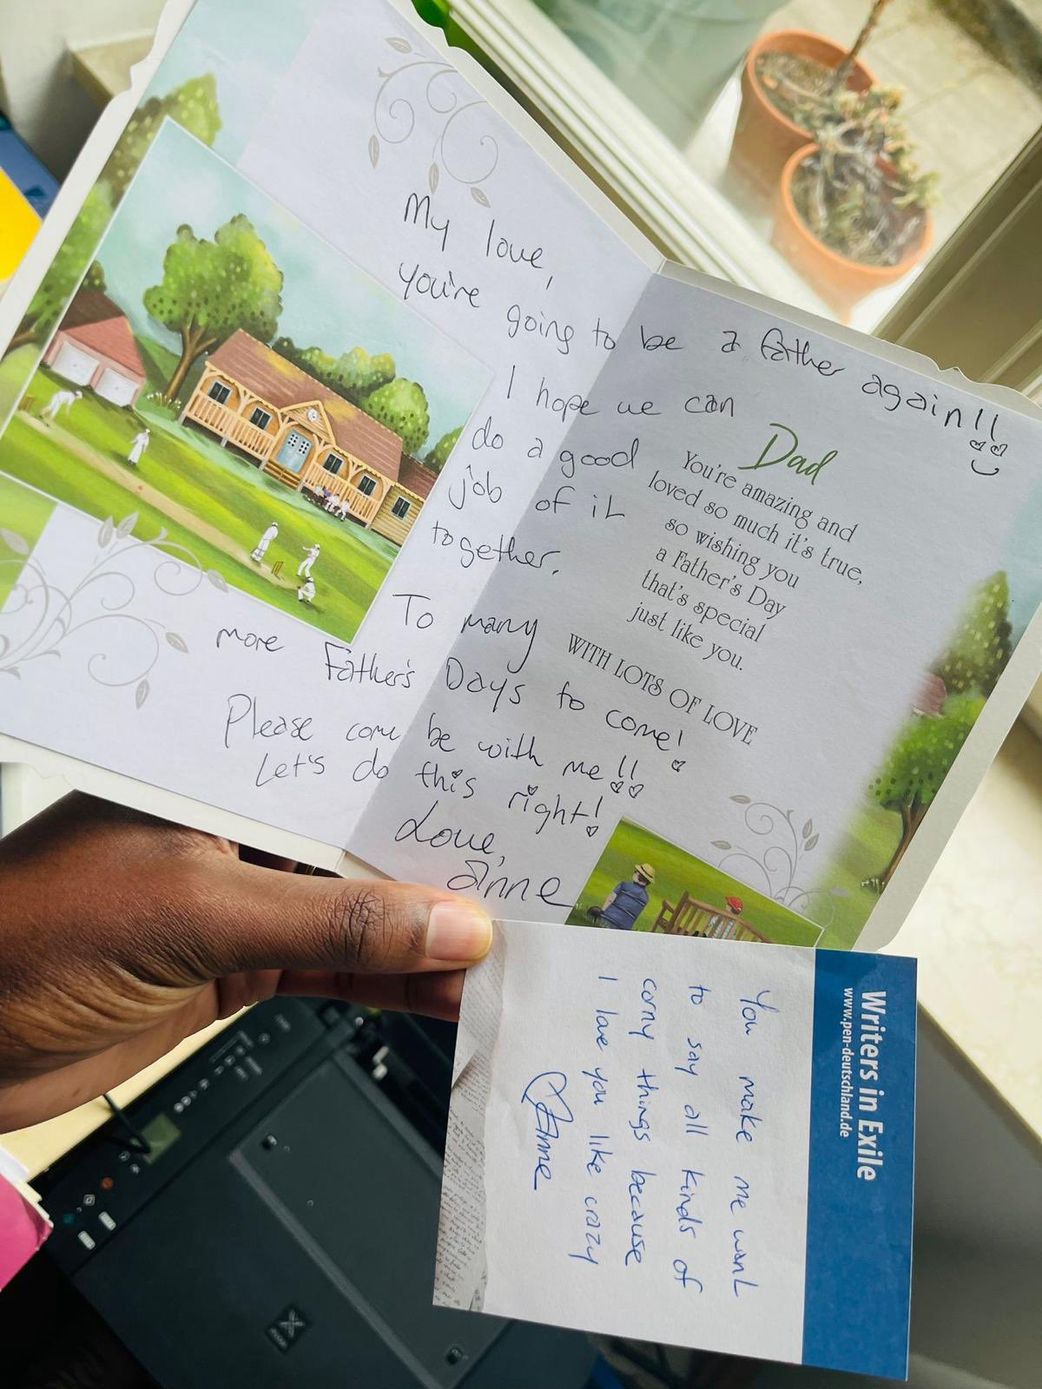 My love,
you're going to be a father again!!
I hope we can
do a good
job of it
together.
To many
more Father's Days to come!
Please come be with me!!
Let's do this right!
Love,
Anne
Dad
You're amazing and
loved so much it's true,
so wishing you
a Father's Day
that's special
just like you.
WITH LOTS OF LOVE
Writers in Exile
www.pen-deutschland.de
You make me want
to say all kinds of
corny things because
I love you like crazy
Anne